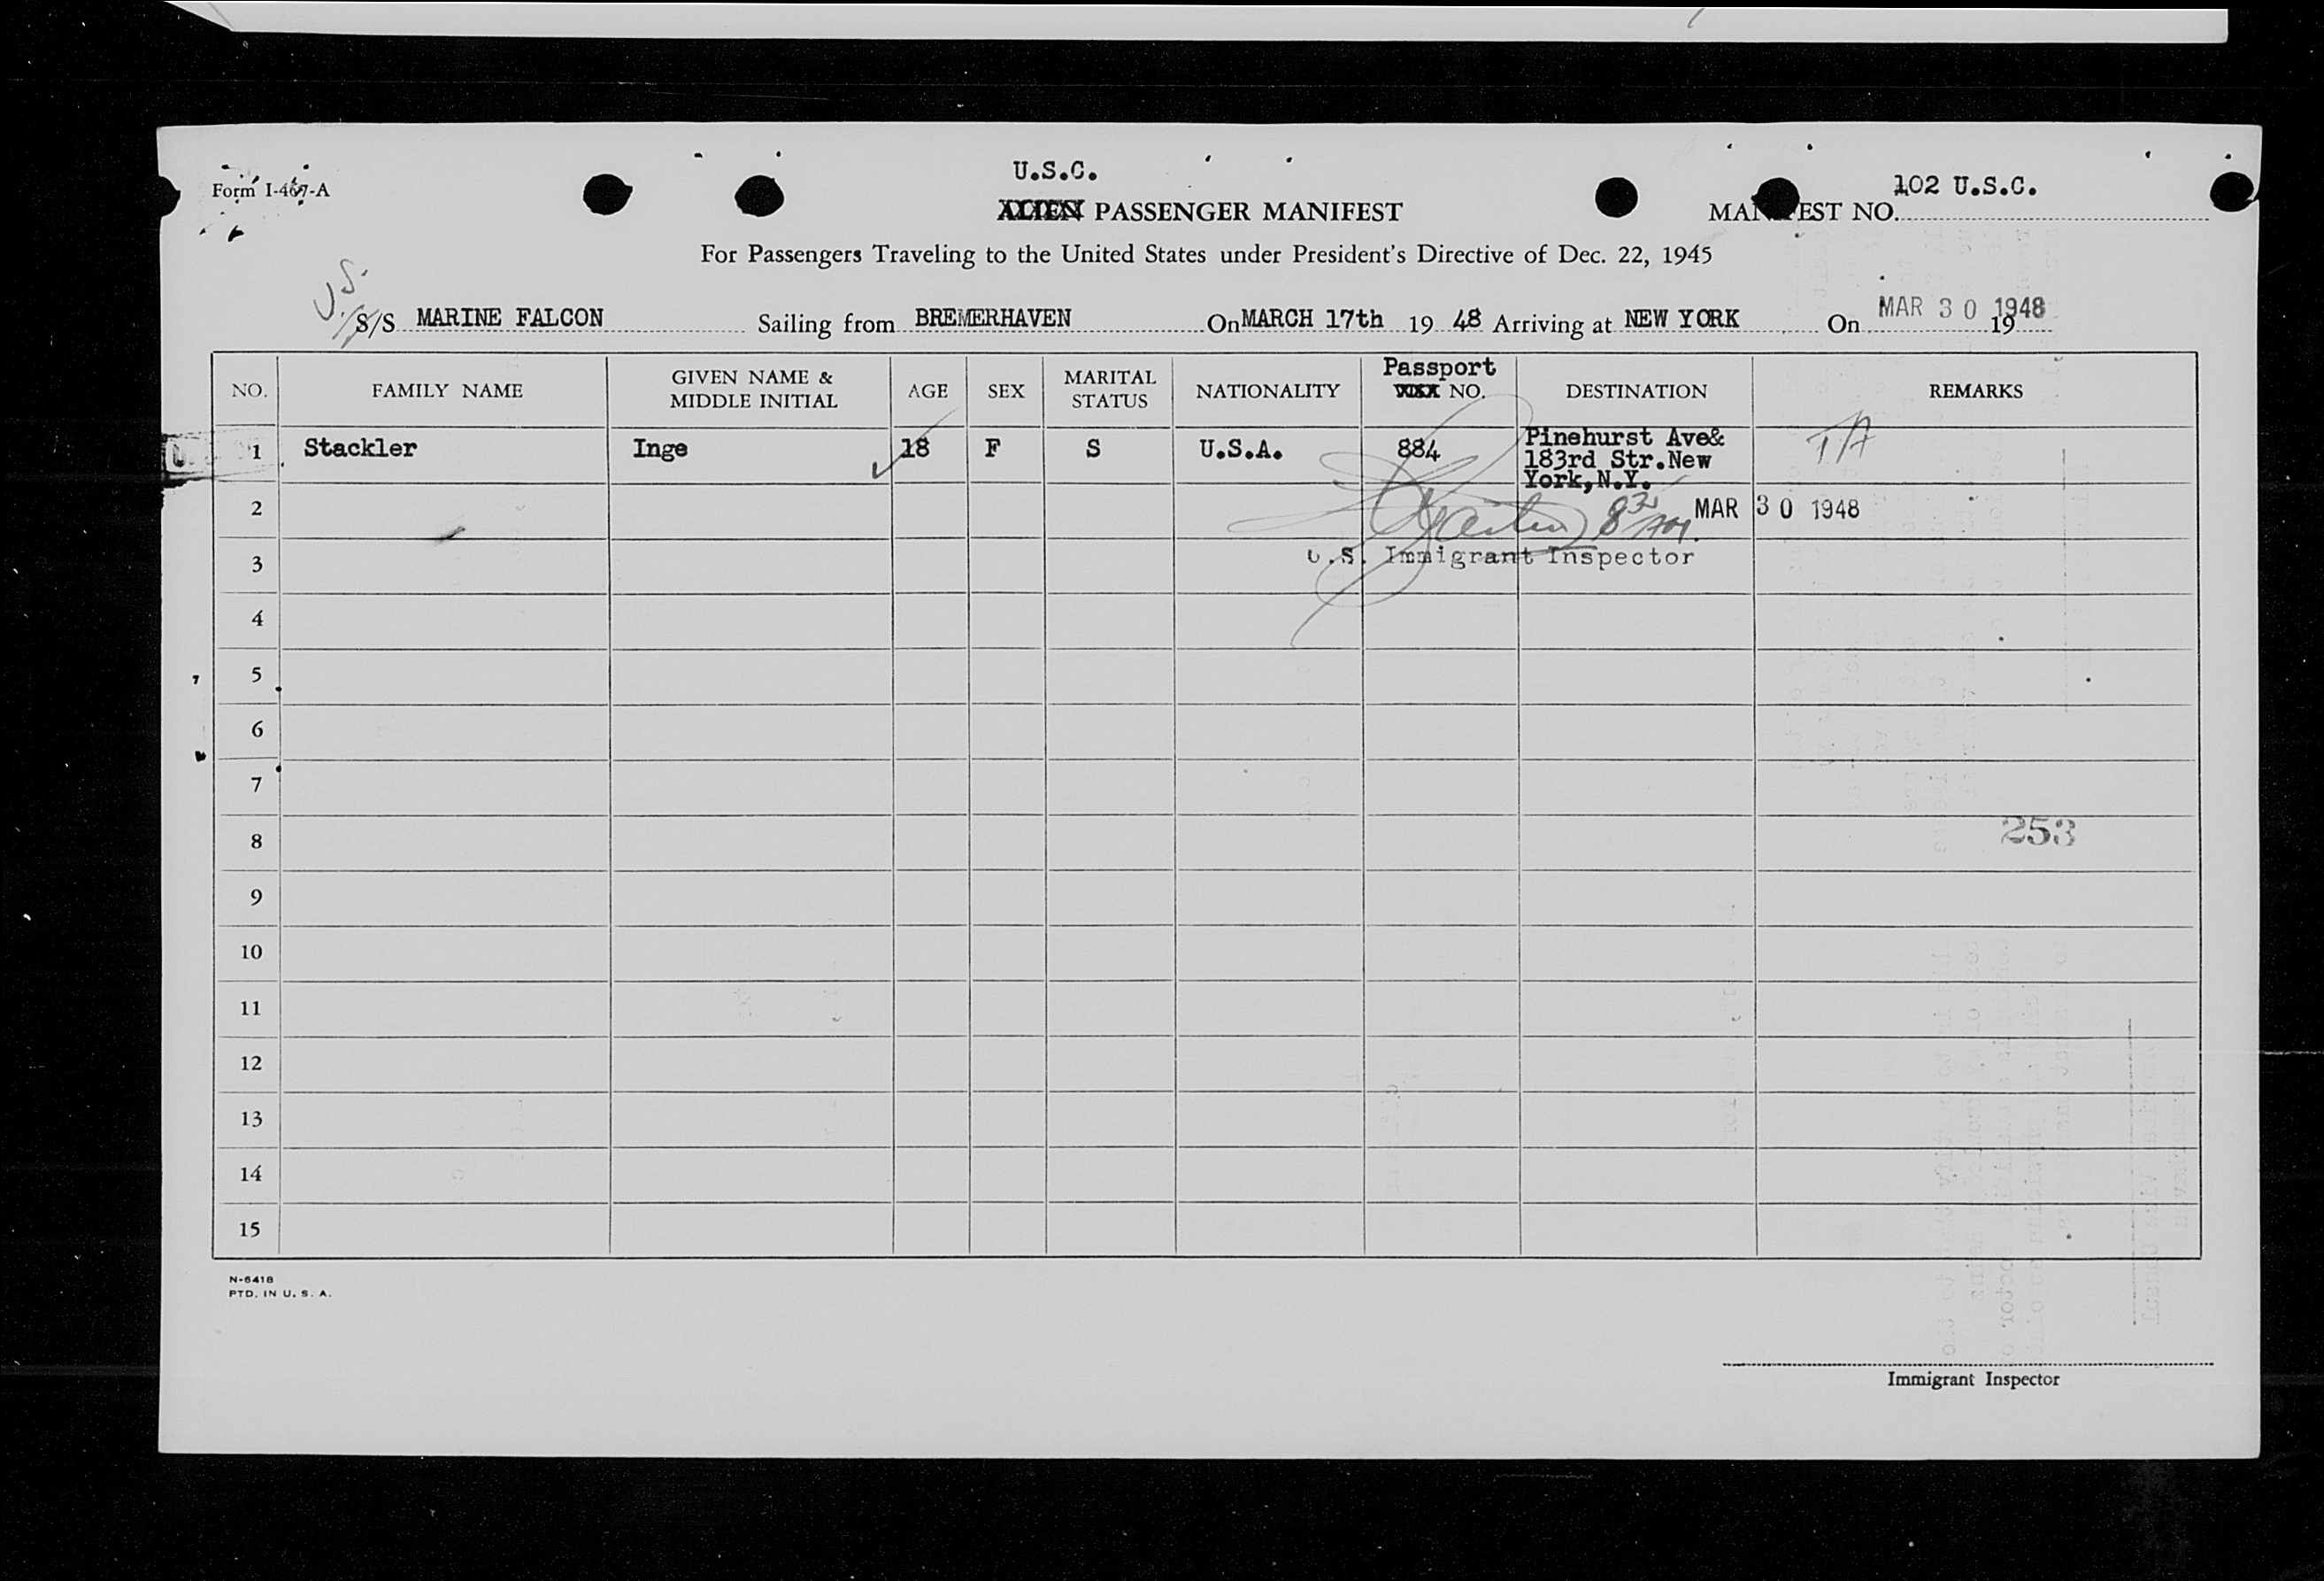 U.S.C.
Form I-467-A
102 U.S.C.
ALIEN PASSENGER MANIFEST
MANIFEST NO.
For Passengers Traveling to the United States under President's Directive of Dec. 22, 1945
U.S.
S/S MARINE FALCON Sailing from BREMERHAVEN On MARCH 17th 19 48 Arriving at NEW YORK On MAR 30 1948 19
NO. FAMILY NAME GIVEN NAME & MIDDLE INITIAL AGE SEX MARITAL STATUS NATIONALITY Passport VISA NO. DESTINATION REMARKS
1 Stackler Inge 18 F S U.S.A. 884 Pinehurst Ave& T/A
183rd Str.New
York,N.Y.
2 8 30 AM. MAR 30 1948
3 U.S. Immigrant Inspector
4
5
6
7
253
8
9
10
11
12
13
14
15
N-6418
PTD. IN U. S. A.
Immigrant Inspector